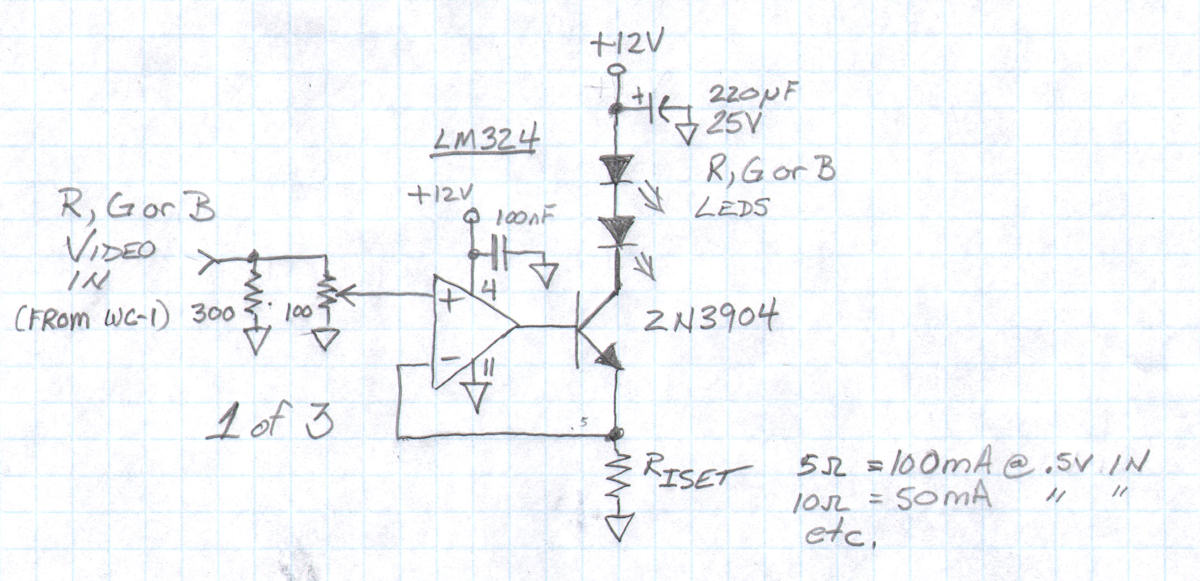 +12V
+
220µF
25V
LM324
R, G or B
LEDS
+12V
100nF
R, G or B
VIDEO
IN
(FROM WC-1)
300
100
+
4
-
11
2N3904
1 of 3
.5
RISET
5Ω = 100mA @ .5V IN
10Ω = 50mA " "
etc.